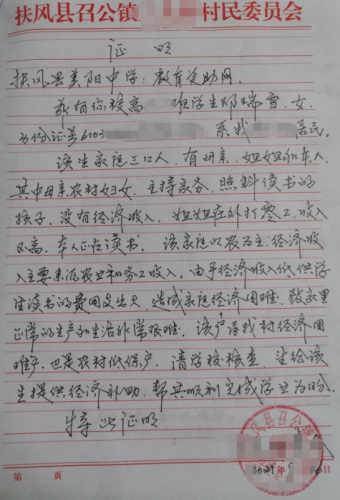 扶风县召公镇 村民委员会
证 明
扶风县美阳中学:教育资助网。
兹有你校高 班学生邢瑞雪,女,
身份证号6103 系我 居民。
该生家庭三口人,有母亲,姐姐和本人
其中母亲农村妇女,主持家务,照料读书的
孩子,没有经济收入,姐姐在外打零工,收入
不高,本人正在读书。该家庭以农为主,经济收
入主要来源农业和务工收入,由于经济收入低,供学
生读书的费用支出大,造成家庭经济困难,致家里
正常的生产和生活非常艰难。该户言我村经济困
难户,也是农村低保户,请学校检查,望给该
生提供经济补助,帮其顺利完成学业为盼。
特此证明
扶风县召公镇
年 月 日
第 页